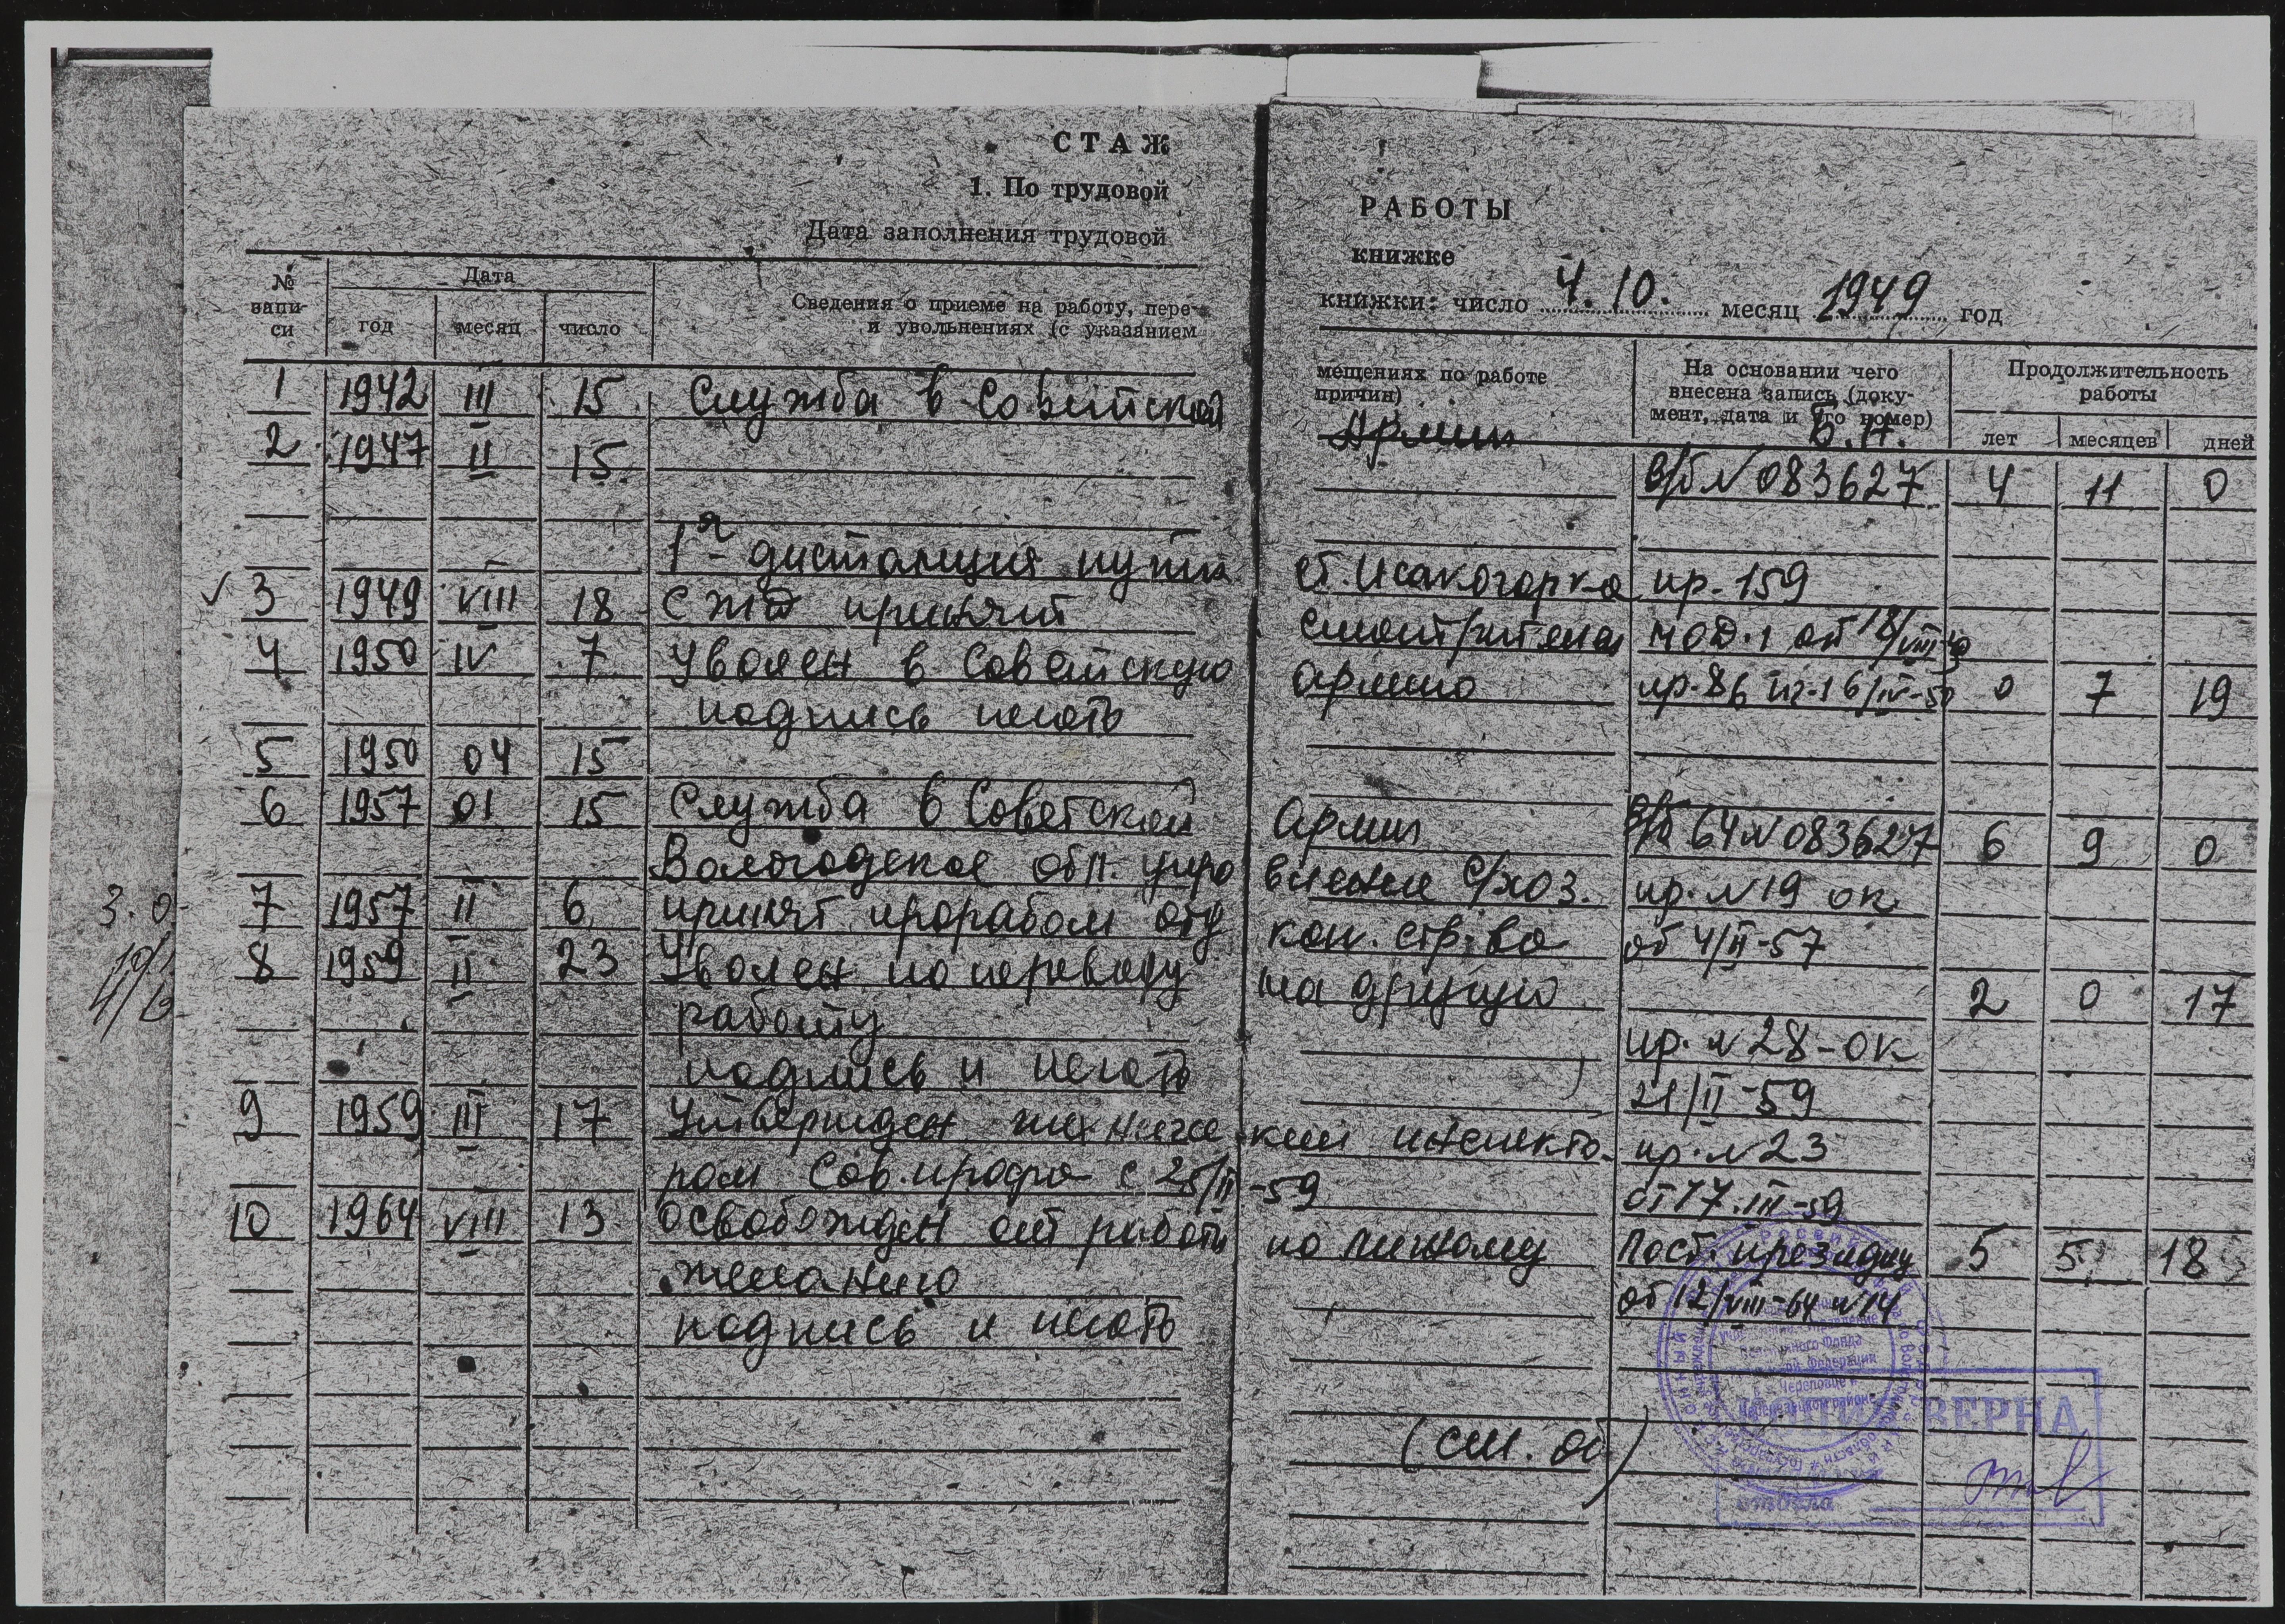 СТАЖ РАБОТЫ
1. По трудовой книжке
Дата заполнения трудовой книжки: число 4.10. месяц 1949 год
№ запи-
си
Дата
год месяц число
Сведения о приеме на работу, пере-
и увольнениях (с указанием
мещениях по работе
причин)
На основании чего
внесена запись (доку-
мент, дата и его номер)
Продолжительность
работы
лет месяцев дней
1 1942 III 15 Служба в Советской Армии
2 1947 II 15 В/б № 083627 4 11 0
1я дистанция пути ст. Исакогорка пр-159
3 1949 VIII 18 С ЖД принят смотрителем
4 1950 IV 7 Уволен в Советскую армию 0 7 19
подпись печать
5 1950 04 15
6 1957 01 15 Служба в Советской Армии 64 № 083627 6 9 0
Вологодское обл. упра вление с/хоз. пр. № 19 ок
7 1957 II 6 принят прорабом отд кол. стр-ва от 4/II-57
8 1959 II 23 Уволен по переводу на другую 2 0 17
работу пр. № 28-ок
подпись и печать 21/II-59
9 1959 III 17 Утвержден техническим инспекто- пр. № 23
ром Сов.профа с 25/III-59 от 17.III-59
10 1964 VIII 13 Освобожден от работы по личному Пост. президиу 5 5 18
желанию от 12/VIII-64 №14
подпись и печать
(см. об)
Пенсионного Фонда
Череповце и
Череповецком районе
КОПИЯ ВЕРНА